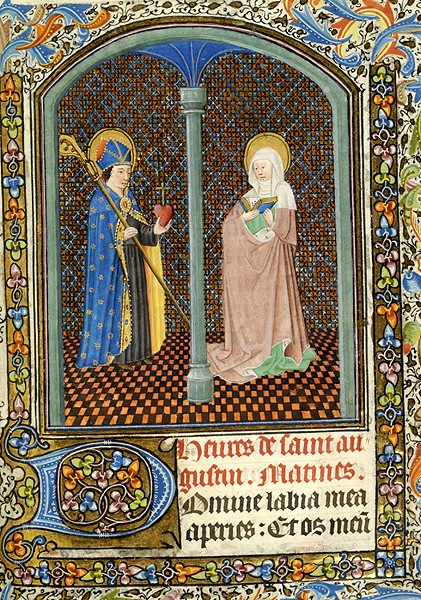 Heures de saint au-
gustin. Matines.
Domine labia mea
aperies: Et os meū